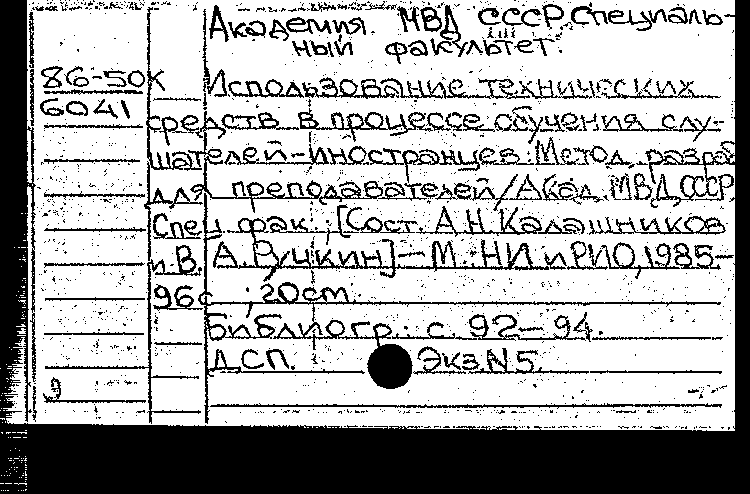 Академия МВД СССР. Специаль-
ный факультет.
86-50К
6041
Использование технических
средств в процессе обучения слу-
шателей-иностранцев: Метод. разраб
для преподавателей/Акад. МВД СССР,
Спец. фак.; [Сост. А.Н. Калашников
и В. А. Ручкин] — М.: НИ и РИО, 1985 —
96с ; 20см.
Библиогр.: с. 92—94.
ДСП. Экз. N 5.